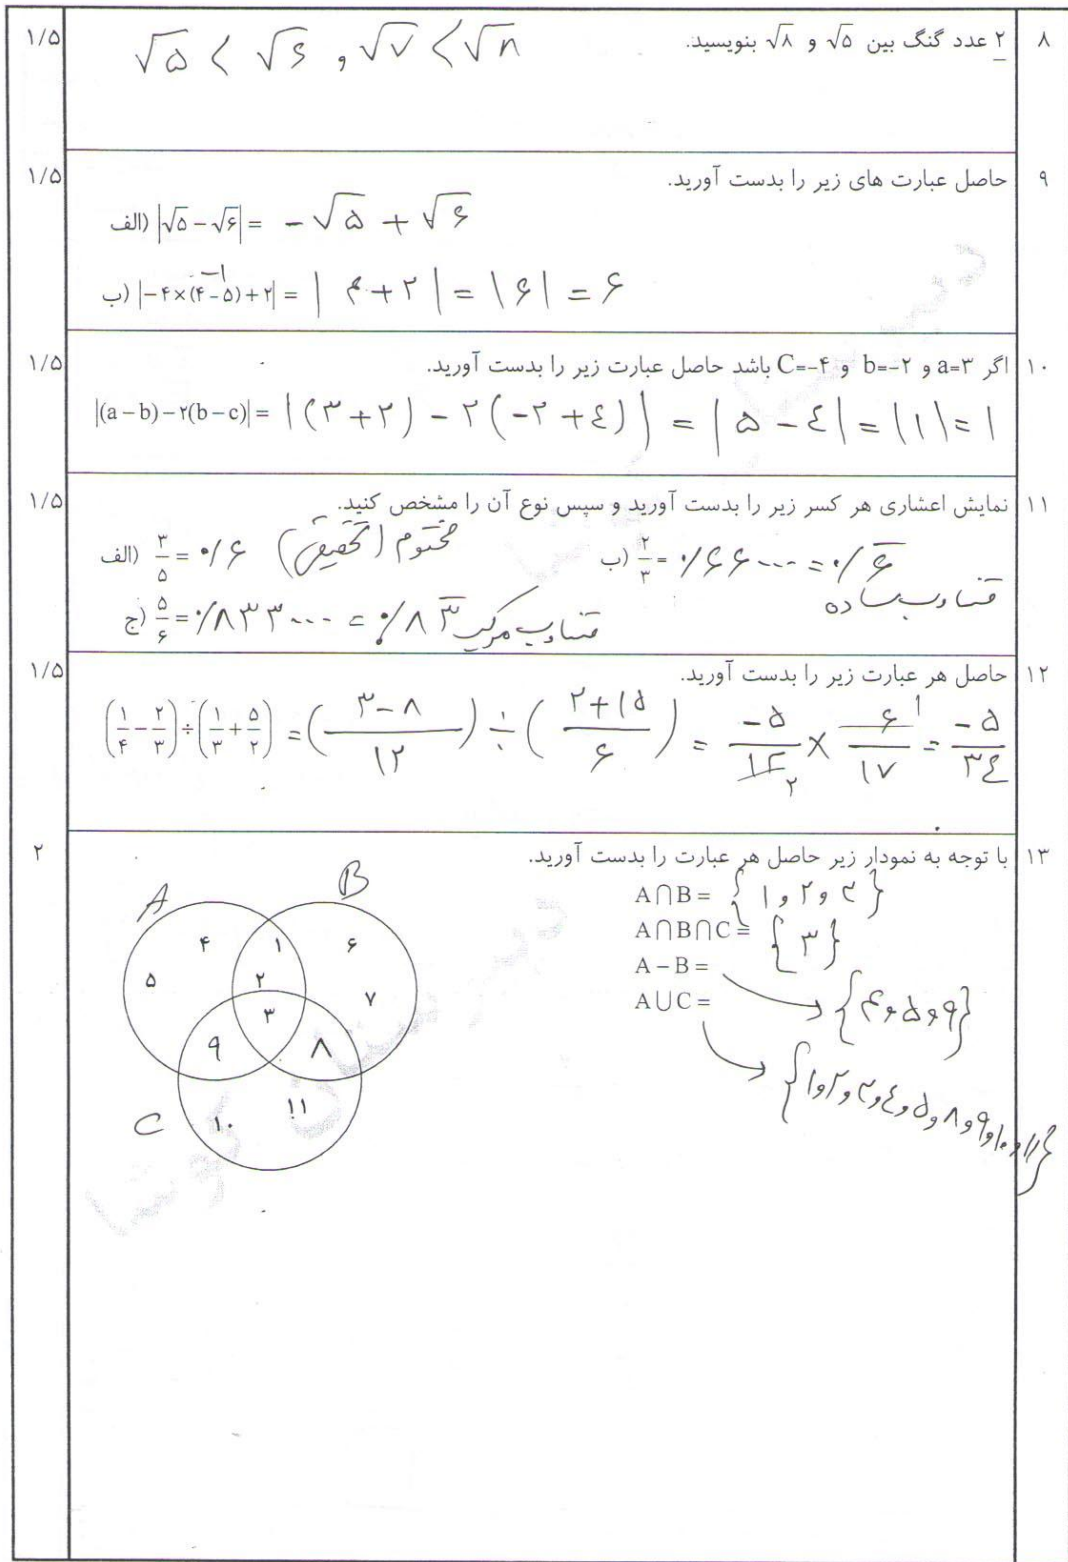 ۸ ۲ عدد گنگ بین √۵ و √۸ بنویسید. ۱/۵
√۵ < √۶ , √۷ < √۸
۹ حاصل عبارت های زیر را بدست آورید. ۱/۵
الف) |√۵ − √۶| = − √۵ + √۶
ب) |−۴×(۴−۵)+۲| = | ۴+۲ | = |۶| = ۶
−۱
۱۰ اگر a=۳ و b=−۲ و C=−۴ باشد حاصل عبارت زیر را بدست آورید. ۱/۵
|(a−b)−۲(b−c)| = |(۳+۲) − ۲(−۲+۴)| = |۵−۴| = |۱| = ۱
۱۱ نمایش اعشاری هر کسر زیر را بدست آورید و سپس نوع آن را مشخص کنید. ۱/۵
الف) ۳/۵ = ۰/۶ مختوم (تحقیقی)
ب) ۲/۳ = ۰/۶۶... = ۰/۶̅
متناوب ساده
ج) ۵/۶ = ۰/۸۳۳... = ۰/۸۳̅ متناوب مرکب
۱۲ حاصل هر عبارت زیر را بدست آورید. ۱/۵
(۱/۴ − ۲/۳) ÷ (۱/۳ + ۵/۲) = (۳−۸/۱۲) ÷ (۲+۱۵/۶) = −۵/۱۲ ۲ × ۶ ۱/۱۷ = −۵/۳۴
۱۳ با توجه به نمودار زیر حاصل هر عبارت را بدست آورید. ۲
A∩B = {۱ و ۲ و ۳}
A∩B∩C = {۳}
A−B = → {۴ و ۵ و ۹}
A∪C = → {۱ و ۲ و ۳ و ۴ و ۵ و ۸ و ۹ و ۱۰ و ۱۱}
A B
۴ ۱ ۶
۵ ۲ ۷
۳
۹ ۸
C ۱۰ ۱۱